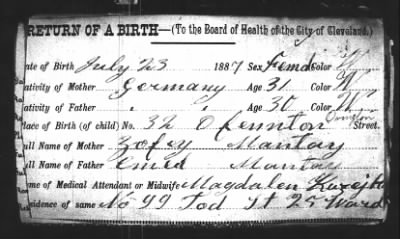 RETURN OF A BIRTH—(To the Board of Health of the City of Cleveland.)
ate of Birth July 23 1887 Sex Color W
ativity of Mother Germany Age 31 Color W
ativity of Father " Age 30 Color W
lace of Birth (of child) No. 32 Street.
ull Name of Mother Zofey Mantay
ull Name of Father Mantay
me of Medical Attendant or Midwife Magdalen
sidence of same No 99 Tod St 25 Ward